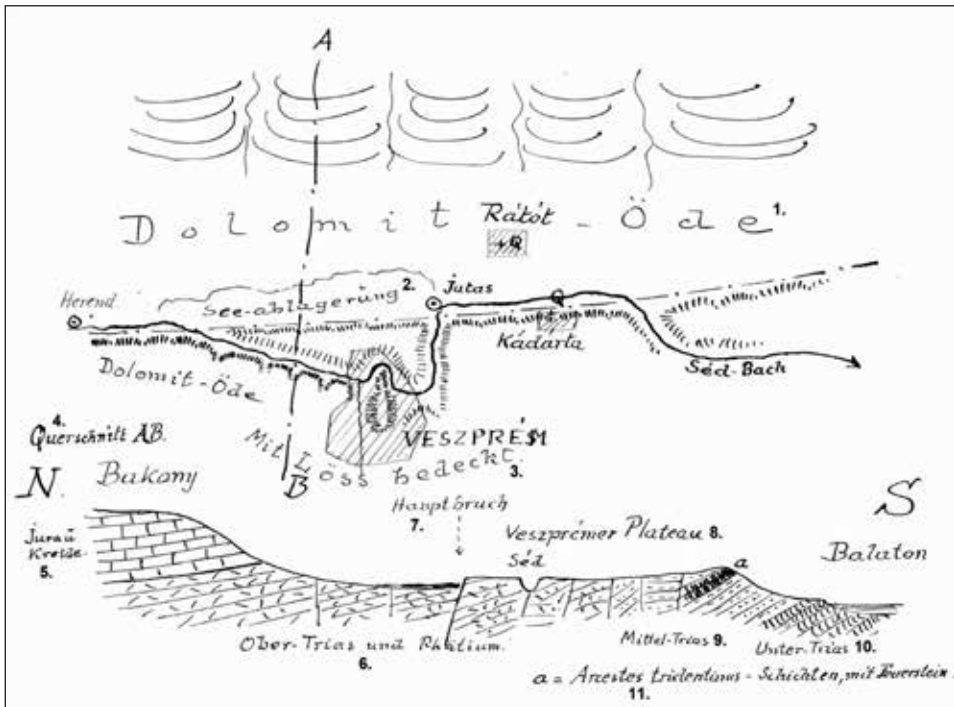 A
Dolomit - Öde 1.
Rátót
See-ablagerung 2.
Jutas
Herend
Kádárta
Dolomit-Öde
Séd-Bach
4.
Querschnitt AB.
VESZPRÉM
Mit Löss bedeckt. 3.
B
N. Bakony
Hauptbruch
7.
S
Veszprémer Plateau 8.
Séd
Balaton
Jura u
Kreide.
5.
a
Ober-Trias und Rhätium.
6.
Mittel-Trias 9.
Unter-Trias 10.
a = Arcestes tridentinus - Schichten, mit Feuerstein.
11.